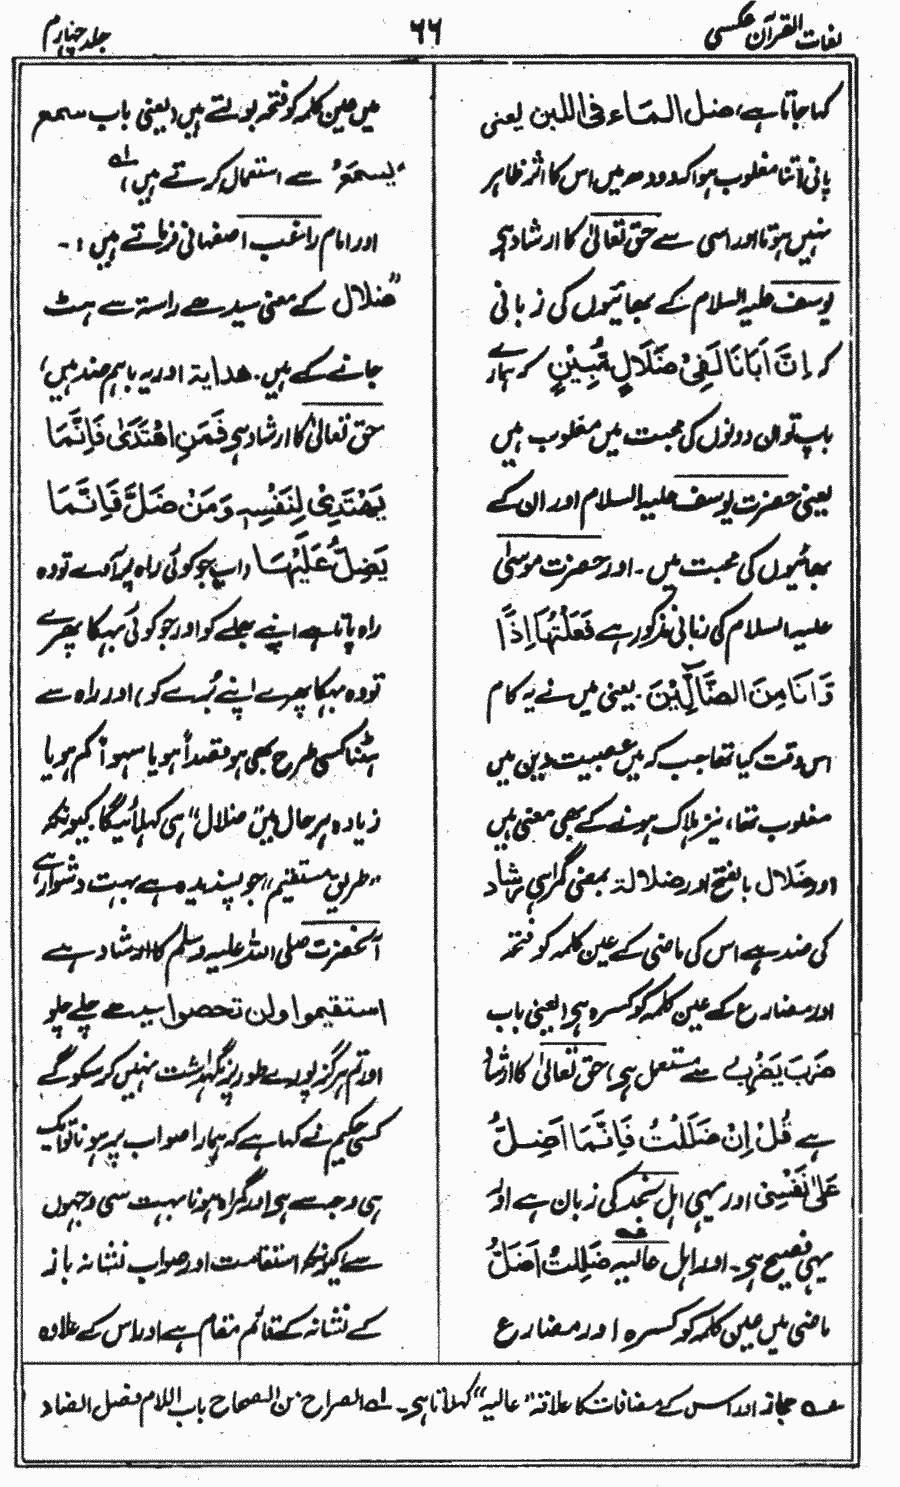 لغات القرآن عکسی
۶۶
جلد چہارم
کہا جاتا ہے، ضل الماء فی اللبن یعنی
پانی اتنا مغلوب ہوا کہ دودھ میں اس کا اثر ظاہر
نہیں ہوتا اور اسی سے حق تعالیٰ کا ارشاد ہے
یوسف علیہ السلام کے بھائیوں کی زبانی
کہ اِنَّ اَبَانَا لَفِیْ ضَلَالٍ مُّبِیْنٍ کہ ہمارے
باپ تو ان دونوں کی محبت میں مغلوب ہیں
یعنی حضرت یوسف علیہ السلام اور ان کے
بھائیوں کی محبت میں۔ اور حضرت موسیٰ
علیہ السلام کی زبانی مذکور ہے فَعَلْتُهَا اِذًا
وَّ اَنَا مِنَ الضَّآلِّیْنَ۔ یعنی میں نے یہ کام
اس وقت کیا تھا جب کہ میں عصبیت دین میں
مغلوب تھا، نیز ہلاک ہونے کے بھی معنی ہیں
اور ضلال بالفتح اور ضلالۃ بمعنی گمراہی ہر شاد
کی ضد ہے اس کی ماضی کے عین کلمہ کو فتحہ
اور مضارع کے عین کلمہ کو کسرہ ہے (یعنی باب
ضَرَبَ یَضْرِبُ سے مستعمل ہے) حق تعالیٰ کا ارشاد
ہے قُلْ اِنْ ضَلَلْتُ فَاِنَّمَا اَضِلُّ
عَلٰی نَفْسِیْ اور یہی اہل نجد کی زبان ہے اور
یہی فصیح ہے۔ اور اہل عالیہ ضَلِلْتُ اَضَلُّ
ماضی میں عین کلمہ کو کسرہ اور مضارع
میں عین کلمہ کو فتحہ بولتے ہیں (یعنی باب سمع
یسمَعُ سے استعمال کرتے ہیں) لہ
اور امام راغب اصفہانی فرماتے ہیں :-
"ضلال کے معنی سیدھے راستہ سے ہٹ
جانے کے ہیں۔ هدایة اور یہ باہم ضد ہیں،
حق تعالیٰ کا ارشاد ہے فَمَنِ اهْتَدٰی فَاِنَّمَا
یَهْتَدِیْ لِنَفْسِهٖ وَمَنْ ضَلَّ فَاِنَّمَا
یَضِلُّ عَلَیْهَا (اب جو کوئی راہ پر آوے تو وہ
راہ پاتا ہے اپنے بھلے کو اور جو کوئی بہکا پھرے
تو وہ بہکا پھرے اپنے بُرے کو) اور راہ سے
ہٹنا کسی طرح بھی ہو قصداً ہو یا سہواً کم ہو یا
زیادہ ہر حال میں "ضلال" ہی کہلائیگا۔ کیونکہ
"طریق مستقیم" جو پسندیدہ ہے بہت دشوار ہے
آنحضرت صلی اللہ علیہ وسلم کا ارشاد ہے
استقیموا ولن تحصوا سیدھے چلے چلو
اور تم ہرگز پورے طور پر نگہداشت نہیں کر سکو گے
کسی حکیم نے کہا ہے کہ ہمارا صواب پر ہونا تو ایک
ہی وجہ سے ہے اور گمراہ ہونا بہت سی وجہوں
سے کیونکہ استقامت اور صواب نشانہ باز
کے نشانہ کے قائم مقام ہے اور اس کے علاوہ
عہ حجاز اور اس کے مضافات کا علاقہ "عالیہ" کہلاتا ہے۔ لہ الصراح من الصحاح باب اللام فصل الضاد